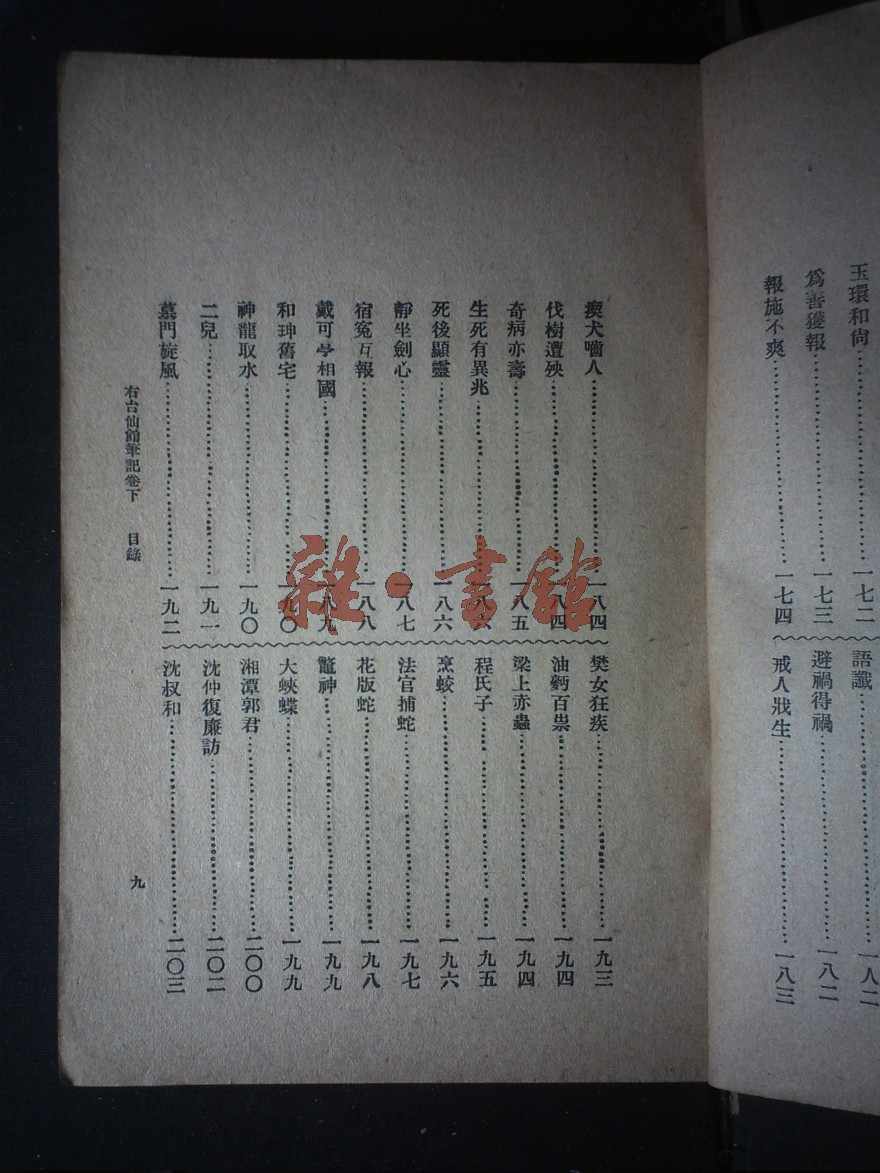 玉環和尙……一七二
爲善獲報……一七三
報施不爽……一七四
語讖……一八二
避禍得禍……一八二
戒人戕生……一八三
瘈犬嚙人……一八四
伐樹遭殃……一八四
奇病亦壽……一八五
生死有異兆……一八六
死後顯靈……一八六
靜坐劍心……一八七
宿冤互報……一八八
戴可亭相國……一八九
和珅舊宅……一九〇
神龍取水……一九〇
二兒……一九一
墓門旋風……一九二
樊女狂疾……一九三
油藔百祟……一九四
梁上赤蟲……一九四
程氏子……一九五
烹蛟……一九六
法官捕蛇……一九七
花版蛇……一九八
鼈神……一九九
大蛺蝶……一九九
湘潭郭君……二〇〇
沈仲復廉訪……二〇二
沈叔和……二〇三
右台仙館筆記卷下 目錄
九
雜·書館